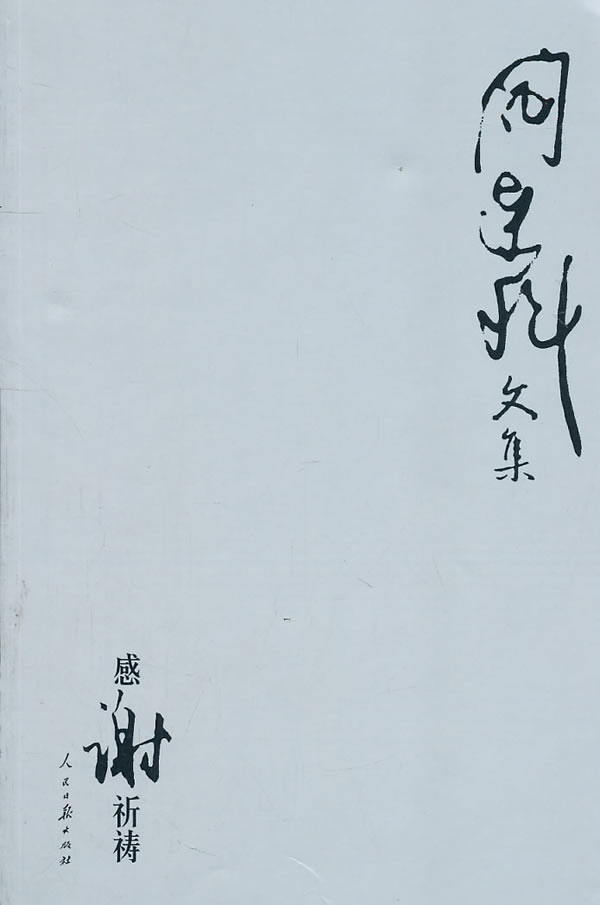 阎连科
文集
感谢祈祷
人民日报出版社